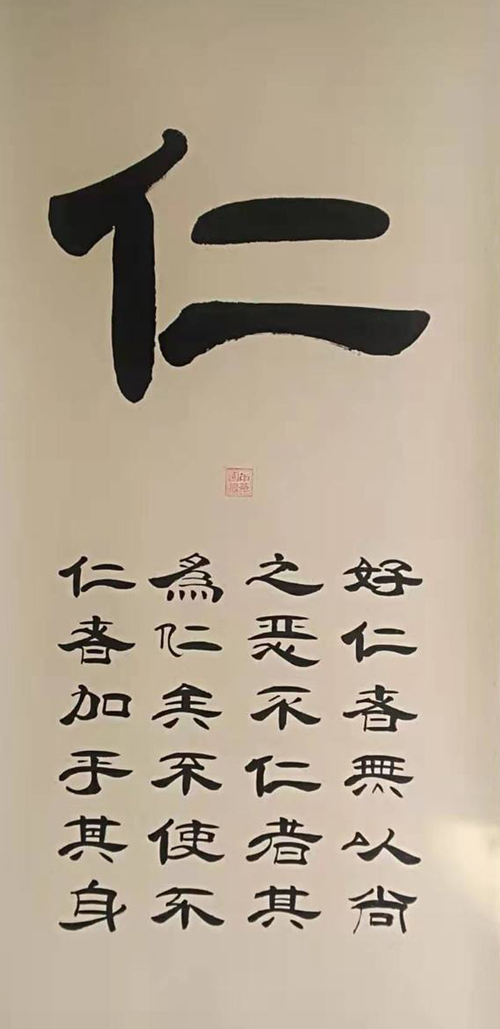 仁
好仁者無以尚
之惡不仁者其
為仁矣不使不
仁者加乎其身